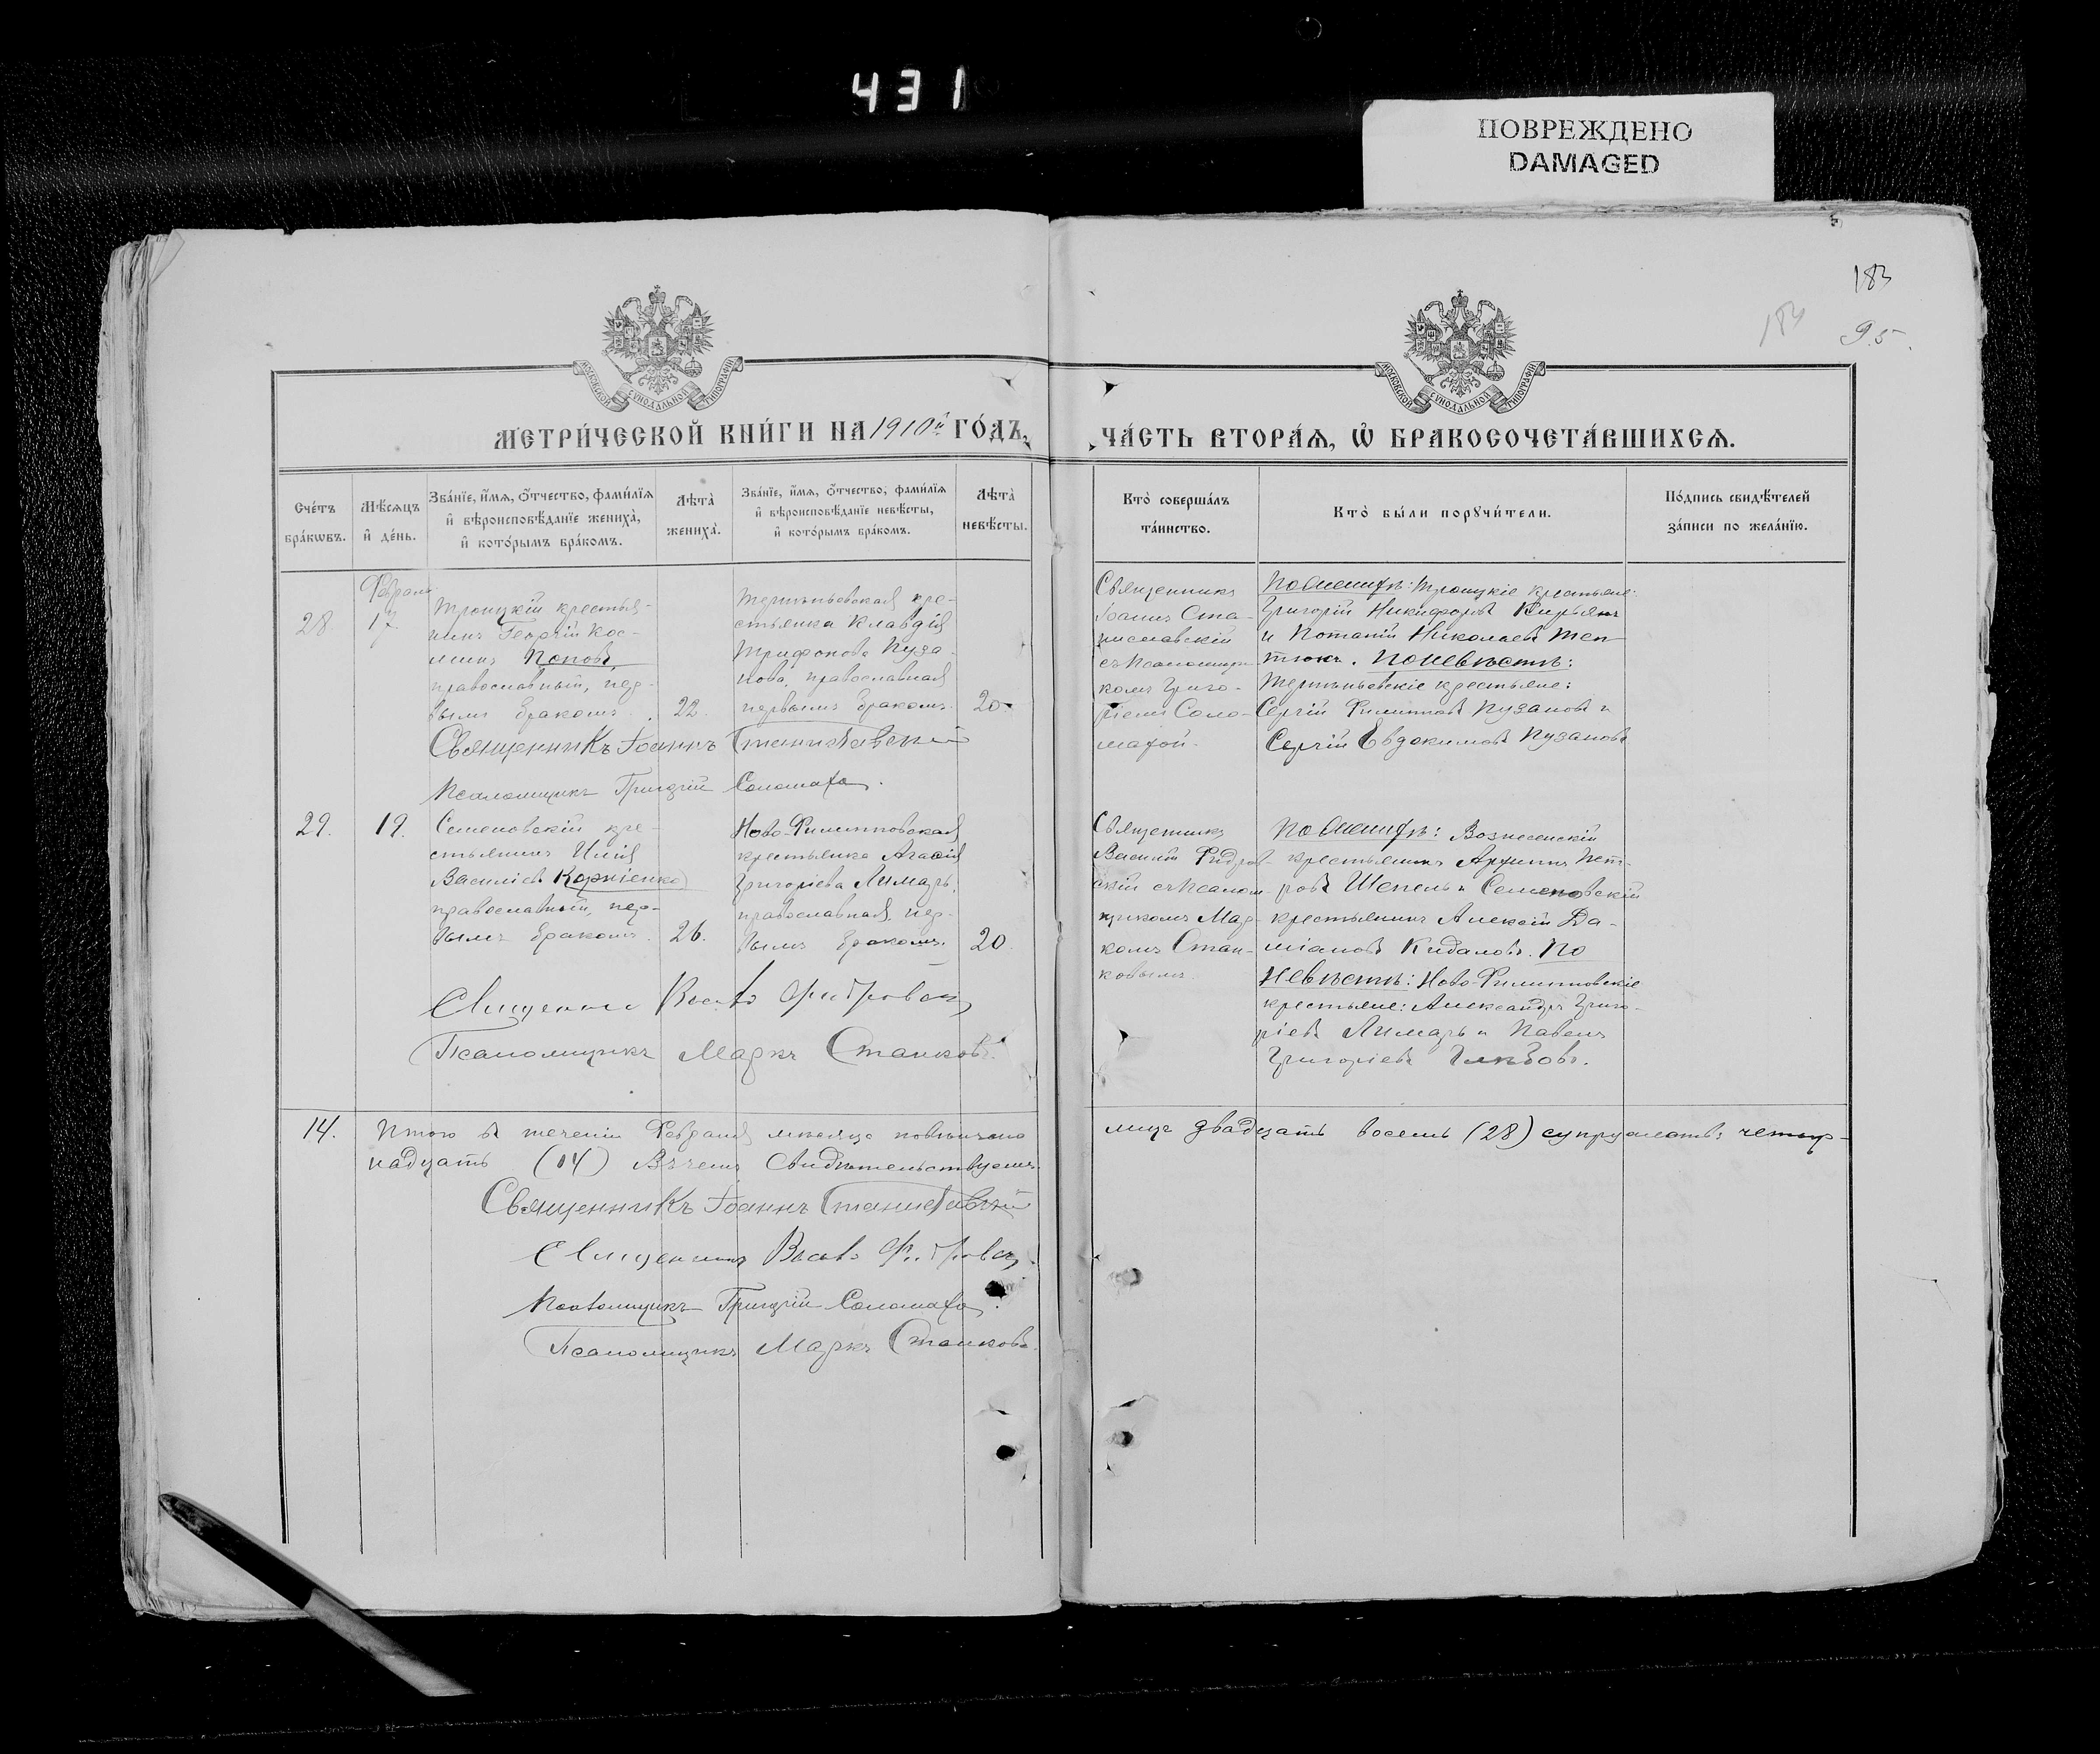 431
ПОВРЕЖДЕНО
DAMAGED
183
183
95.
МОСКОВСКОЙ СѴНОДАЛЬНОЙ ТИПОГРАФІИ
МОСКОВСКОЙ СѴНОДАЛЬНОЙ ТИПОГРАФІИ
МЕТРИ́ЧЕСКОЙ КНИ́ГИ НА 1910й ГО́ДЪ,
ЧА́СТЬ ВТОРА́Ѧ, Ѡ҆ БРАКОСОЧЕТА́ВШИХСѦ.
Сче́тъ
бра́кѡвъ.
Мѣ́сѧцъ
и҆ де́нь.
Зва́нїе, и҆́мѧ, ѻ҆́тчество, фами́лїѧ
и҆ вѣроисповѣ́данїе жениха̀,
и҆ кото́рымъ бра́комъ.
Лѣта̀
жениха̀.
Зва́нїе, и҆́мѧ, ѻ҆́тчество, фами́лїѧ
и҆ вѣроисповѣ́данїе невѣ́сты,
и҆ кото́рымъ бра́комъ.
Лѣта̀
невѣ́сты.
Кто̀ соверша́лъ
та́инство.
Кто̀ бы́ли порꙋчи́тели.
По́дпись свидѣ́телей
за́писи по жела́нїю.
28.
Февраль
17.
Троицкій крестья-
нинъ Георгій Кос-
минъ Поповъ,
православный, пер-
вымъ бракомъ.
22.
кре-
стьянка Клавдія
Трифонова Пуза-
нова, православная
первымъ бракомъ.
20.
Священникъ
Іоаннъ Ста-
ниславскій
съ псаломщи-
комъ Григо-
ріемъ Соло-
махой.
По женихѣ: Троицкіе крестьяне:
Григорій Никифоровъ Кирьянъ
и Потапій Николаевъ Теп-
тюкъ. По невѣстѣ:
крестьяне:
Сергій Филипповъ Пузановъ и
Сергій Евдокимовъ Пузановъ
Священникъ Іоаннъ Станиславскій
Псаломщикъ Григорій Соломаха.
29.
19.
Семеновскій кре-
стьянинъ Илія
Василіевъ Корніенко
православный, пер-
вымъ бракомъ.
26.
Ново-Филипповская
крестьянка Агафія
Григоріева Лимарь,
православная, пер-
вымъ бракомъ.
20.
Священникъ
Василій
скій съ псалом-
щикомъ Мар-
комъ Стан-
ковымъ.
По женихѣ: Вознесенскій
крестьянинъ Архипъ Пет-
ровъ Шепель и Семеновскій
крестьянинъ Алексій Да-
міановъ Кидаловъ. По
невѣстѣ: Ново-Филипповскіе
крестьяне: Александръ Григо-
ріевъ Лимарь и Павелъ
Григоріевъ Глѣбовъ.
Священникъ
Псаломщикъ Маркъ Станковъ.
14.
Итого въ теченіи Февраля мѣсяца повѣнчано
лицъ двадцать восемь (28) супружествъ: четыр-
надцать (14) Въ чемъ свидѣтельствуемъ:
Священникъ Іоаннъ Станиславскій
Священникъ
Псаломщикъ Григорій Соломаха.
Псаломщикъ Маркъ Станковъ.